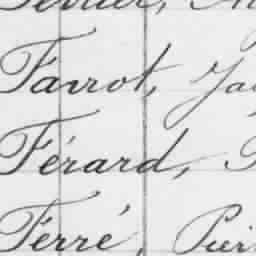 Farrot, Ja
Férard,
Ferré, Pier